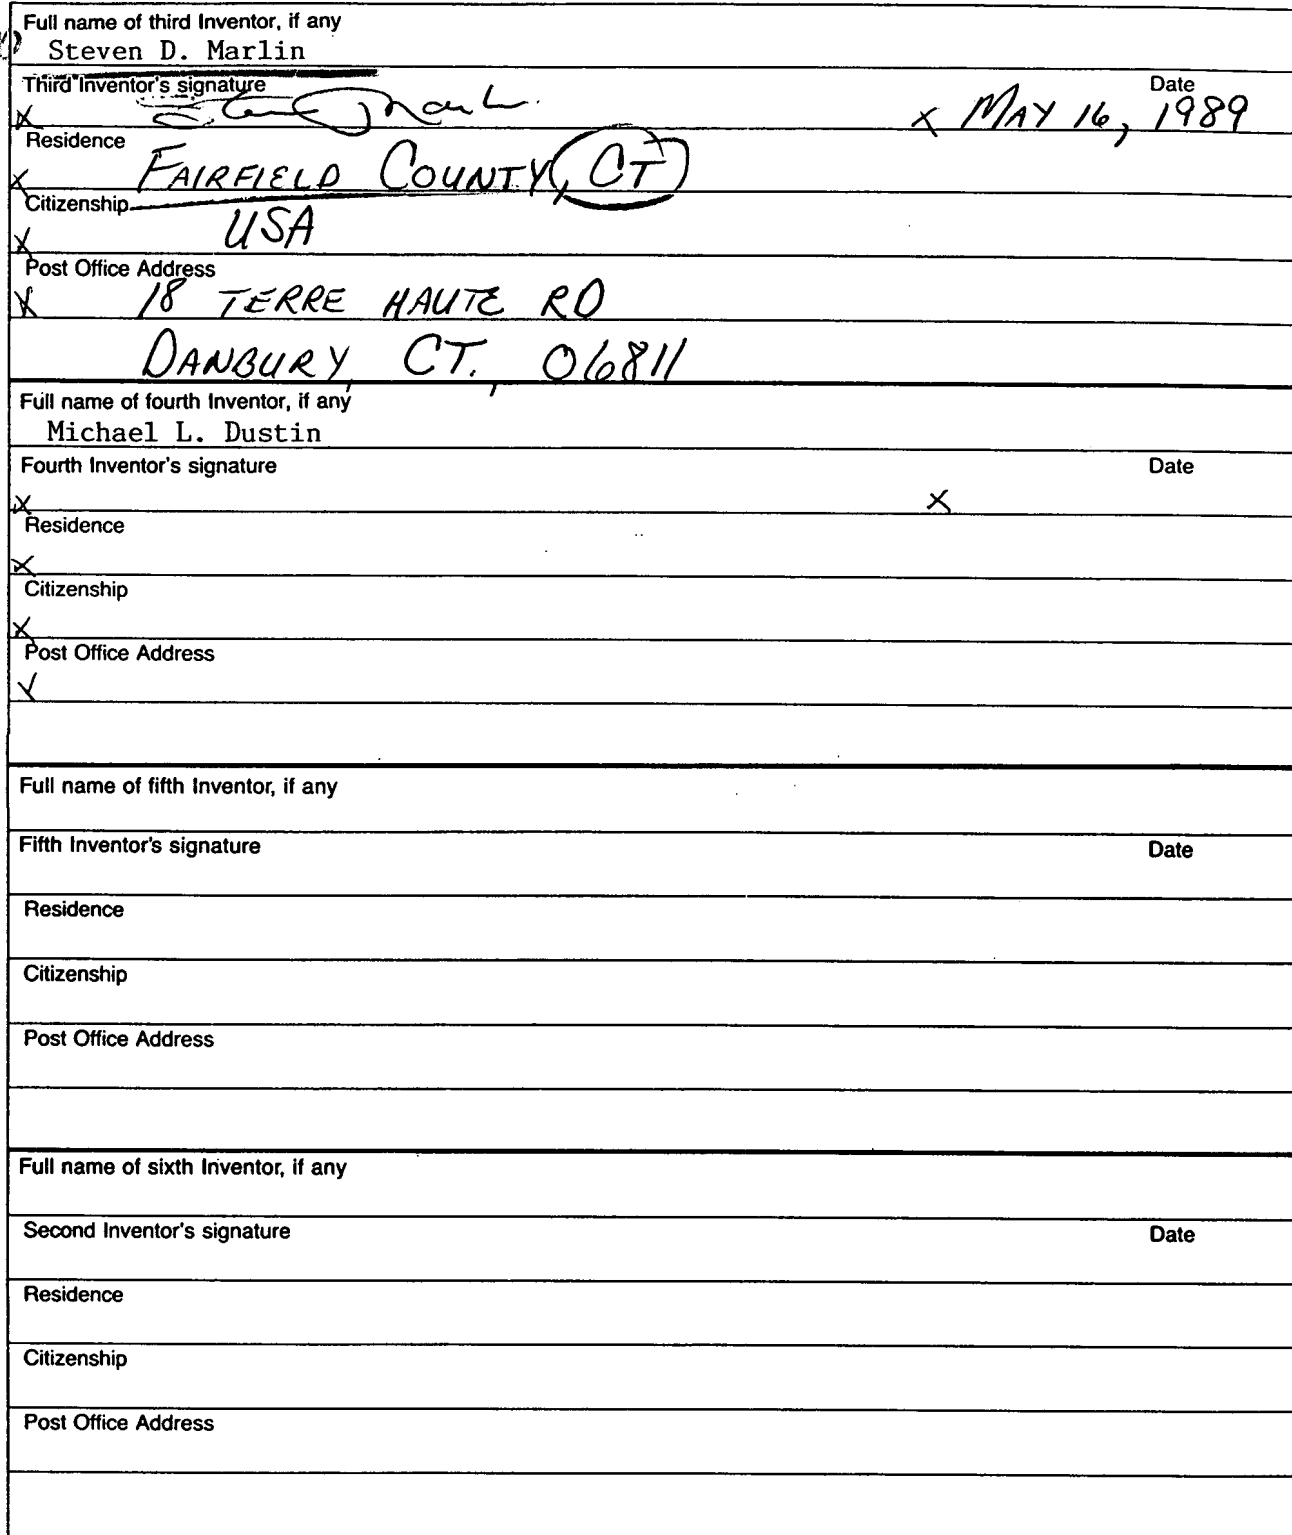 Full name of third Inventor, if any
Steven D. Marlin
Third Inventor's signature Date
x x MAY 16, 1989
Residence
x FAIRFIELD COUNTY, CT
Citizenship
x USA
Post Office Address
x 18 TERRE HAUTE RD
DANBURY, CT., 06811
Full name of fourth Inventor, if any
Michael L. Dustin
Fourth Inventor's signature Date
x x
Residence
x
Citizenship
x
Post Office Address
x
Full name of fifth Inventor, if any
Fifth Inventor's signature Date
Residence
Citizenship
Post Office Address
Full name of sixth Inventor, if any
Second Inventor's signature Date
Residence
Citizenship
Post Office Address